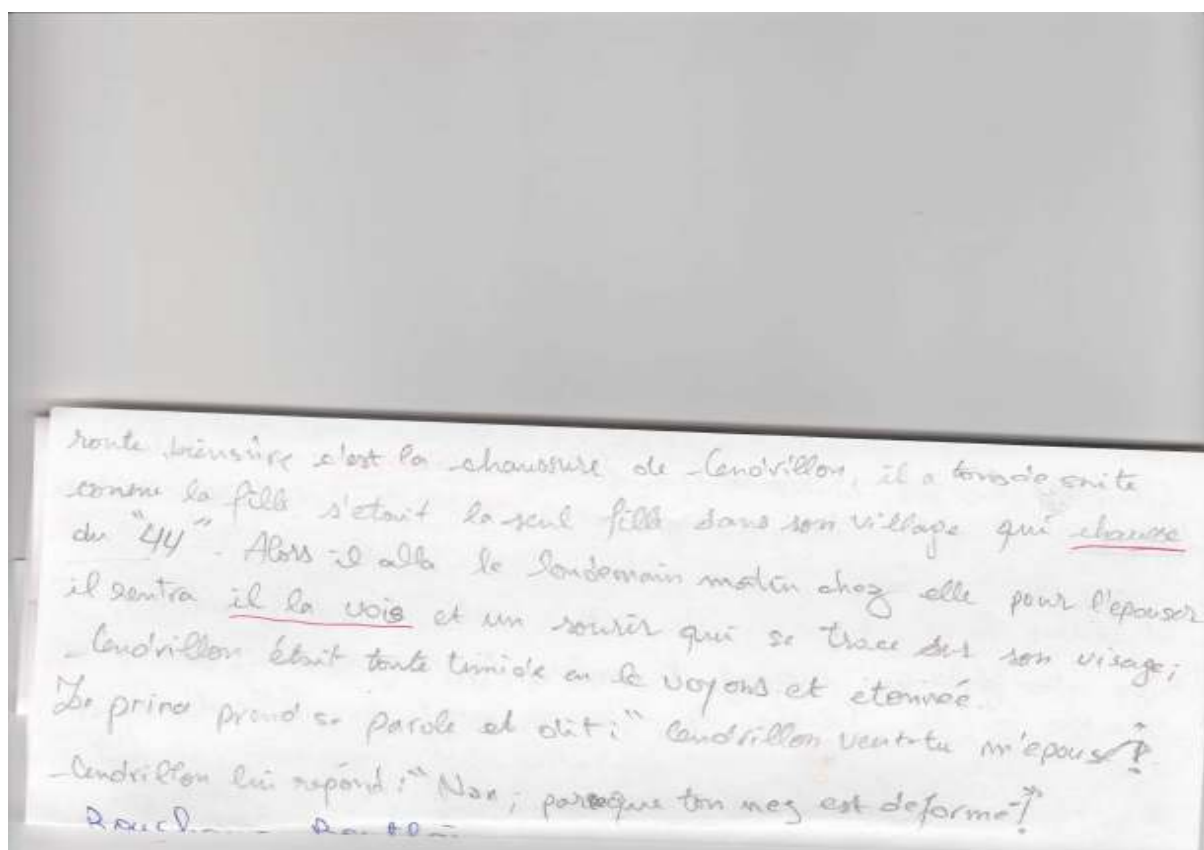 route biensûre c'est la chaussure de Cendrillon, il a suite
comme la fille s'etait la seul fille dans son village qui chausse
du "44". Alors il alla le lendemain matin chez elle pour l'epouser
il rentra il la vois et un sourir qui se trace sur son visage;
Cendrillon était toute timide en le voyons et étonnée.
Le prince prend sa parole et dit: "Cendrillon veut-tu m'epouser?"
Cendrillon lui repond: "Non; parceque ton nez est deformé!"